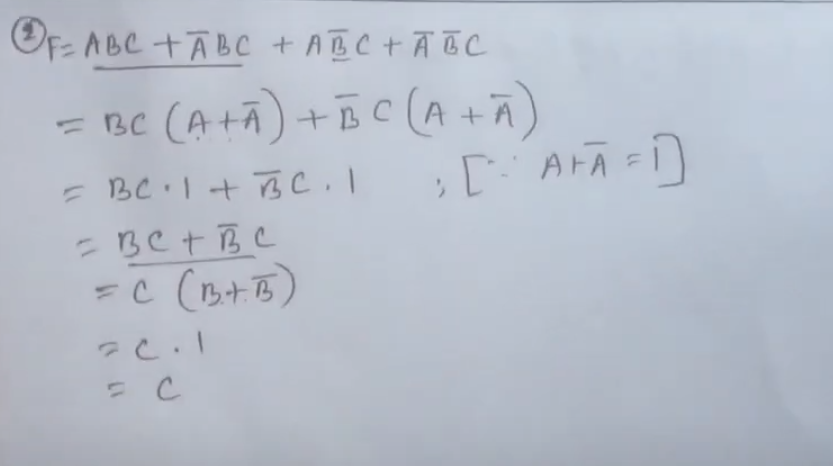 ② F = ABC + A̅BC + AB̅C + A̅ B̅C
= BC (A + A̅) + B̅C (A + A̅)
= BC · 1 + B̅C · 1 ; [∵ A + A̅ = 1]
= BC + B̅C
= C (B + B̅)
= C · 1
= C